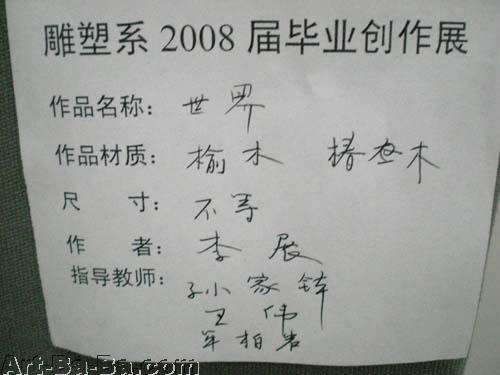 雕塑系2008届毕业创作展
作品名称：世界
作品材质：榆木 椿木
尺 寸：不等
作 者：李展
指导教师：孙家钵
王伟
牟柏岩
Art-Ba-Ba.com
Art-Ba-Ba.com